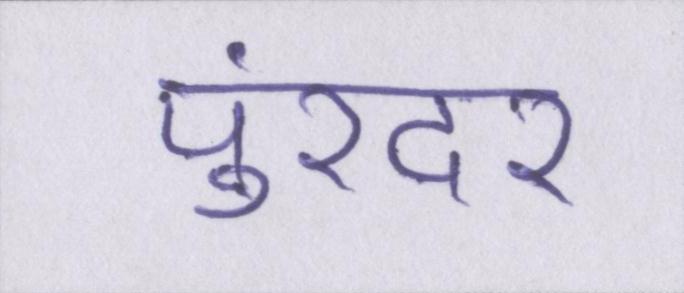 पुंरदर